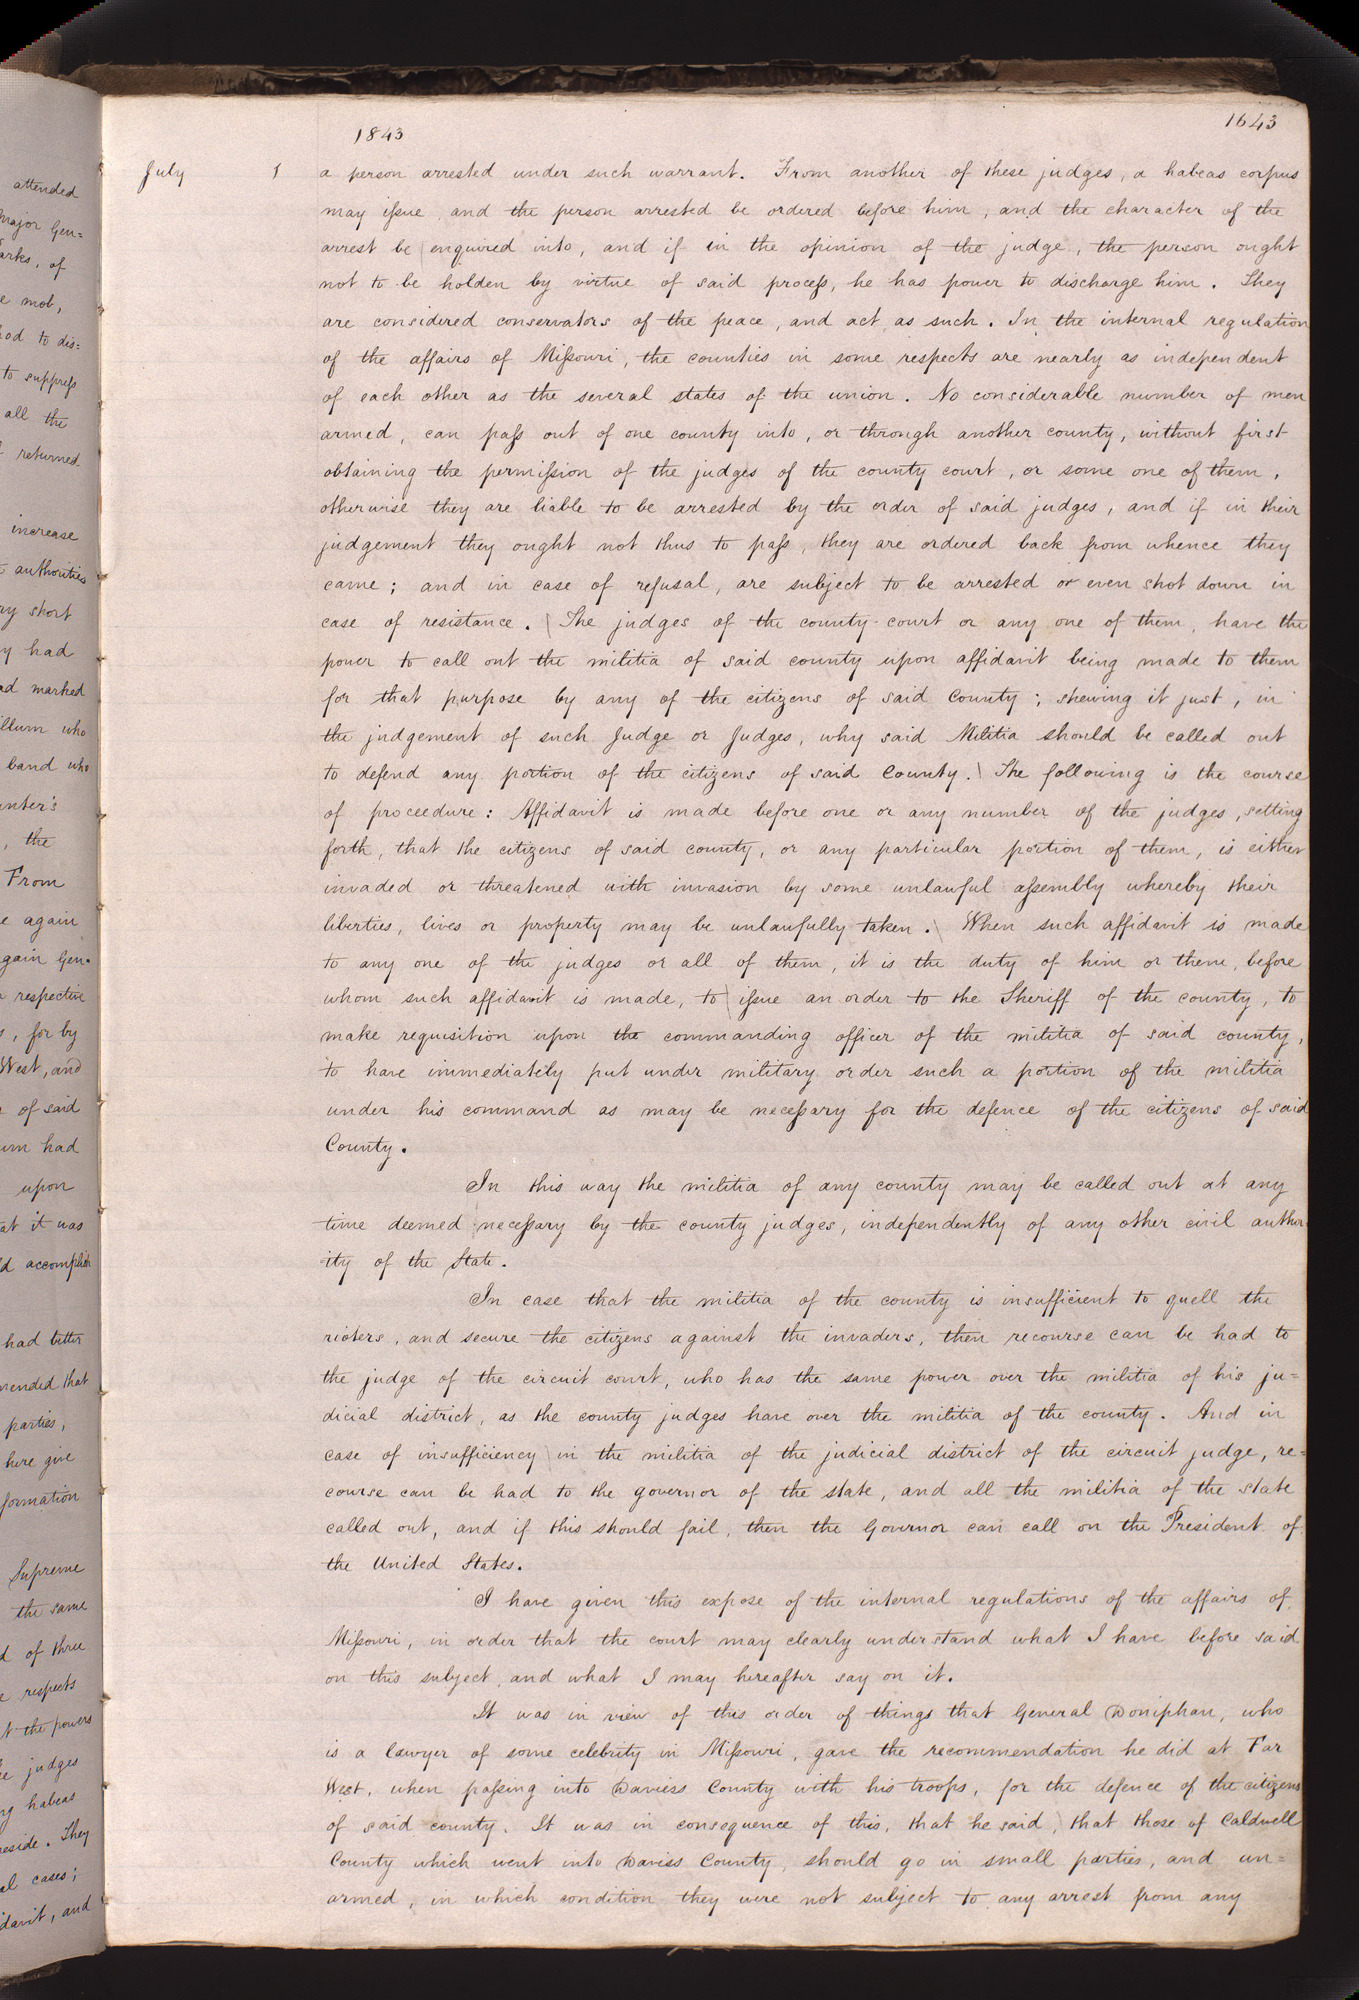 1843
1643
July 1 a person arrested under such warrant. From another of these judges, a habeas corpus
may issue, and the person arrested be ordered before him, and the character of the
arrest be enquired into, and if in the opinion of the judge, the person ought
not to be holden by virtue of said process, he has power to discharge him. They
are considered conservators of the peace, and act as such. In the internal regulation
of the affairs of Missouri, the counties in some respects are nearly as independent
of each other as the several states of the union. No considerable number of men
armed, can pass out of one county into, or through another county, without first
obtaining the permission of the judges of the county court, or some one of them,
otherwise they are liable to be arrested by the order of said judges, and if in their
judgement they ought not thus to pass, they are ordered back from whence they
came; and in case of refusal, are subject to be arrested or even shot down in
case of resistance. The judges of the county court or any one of them, have the
power to call out the militia of said county upon affidavit being made to them
for that purpose by any of the citizens of said County; shewing it just, in
the judgement of such Judge or Judges, why said Militia should be called out
to defend any portion of the citizens of said County. The following is the course
of proceedure: Affidavit is made before one or any number of the judges, setting
forth, that the citizens of said county, or any particular portion of them, is either
invaded or threatened with invasion by some unlawful assembly whereby their
liberties, lives or property may be unlawfully taken. When such affidavit is made
to any one of the judges or all of them, it is the duty of him or them, before
whom such affidavit is made, to issue an order to the Sheriff of the county, to
make requisition upon the commanding officer of the militia of said county,
to have immediately put under military order such a portion of the militia
under his command as may be necessary for the defence of the citizens of said
County.
In this way the militia of any county may be called out at any
time deemed necessary by the county judges, independently of any other civil author
-ity of the State.
In case that the militia of the county is insufficient to quell the
rioters, and secure the citizens against the invaders, then recourse can be had to
the judge of the circuit court, who has the same power over the militia of his ju=
dicial district, as the county judges have over the militia of the county. And in
case of insufficiency in the militia of the judicial district of the circuit judge, re=
course can be had to the governor of the state, and all the militia of the state
called out, and if this should fail, then the Governor can call on the President of
the United States.
I have given this expose of the internal regulations of the affairs of
Missouri, in order that the court may clearly understand what I have before said
on this subject, and what I may hereafter say on it.
It was in view of this order of things that General Doniphan, who
is a lawyer of some celebrity in Missouri, gave the recommendation he did at Far
West, when passing into Daviess County with his troops, for the defence of the citizens
of said county. It was in consequence of this, that he said, that those of Caldwell
County which went into Daviss County, should go in small parties, and un=
armed, in which condition they were not subject to any arrest from any
attended
Major Gen=
of
mob,
to dis=
to suppress
all the
returned
increase
authorities
short
had
marked
who
band who
the
From
again
Gen.
respective
, for by
West, and
of said
had
upon
it was
accomplish
had better
that
parties,
here give
Supreme
the same
of three
respects
the powers
judges
habeas
They
cases;
and